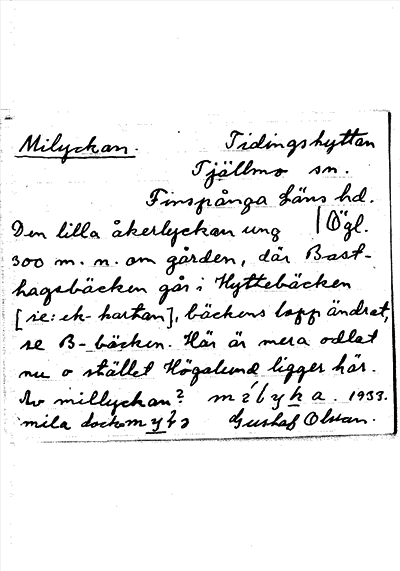 Milyckan. Tidingshyttan
Tjällmo sn.
Finspånga Läns hd.
Den lilla åkerlyckan ung Ögl.
300 m. n. om gården, där Bast-
hagsbäcken går i Hyttebäcken
[se: ek-kartan], bäckens lopp ändrat,
se B-bäcken. Här är mera odlat
nu o stället Högalund ligger här.
Av millyckan? 1933.
mila dock Gustaf Olsson.